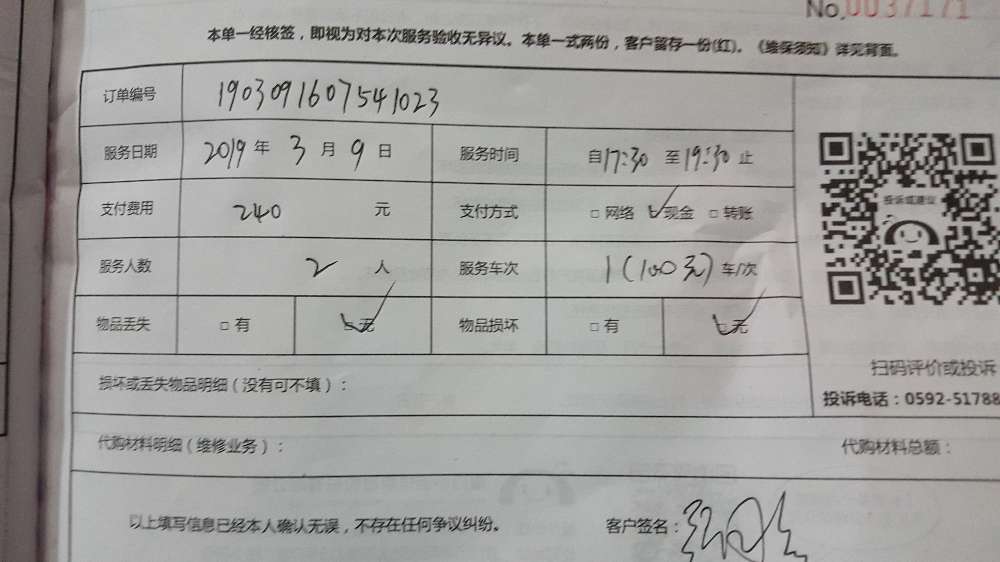 No.0037171
本单一经核签，即视为对本次服务验收无异议。本单一式两份，客户留存一份(红)。《维保须知》详见背面。
订单编号 1903091607541023
服务日期 2019 年 3 月 9 日 服务时间 自17:30 至 19:30 止
支付费用 240 元 支付方式 □ 网络 ☑ 现金 □ 转账
服务人数 2 人 服务车次 1(100元) 车/次
物品丢失 □ 有 ☑ 无 物品损坏 □ 有 ☑ 无
投诉或建议
扫码评价或投诉
投诉电话：0592-51788
损坏或丢失物品明细（没有可不填）：
代购材料明细（维修业务）： 代购材料总额：
以上填写信息已经本人确认无误，不存在任何争议纠纷。 客户签名：